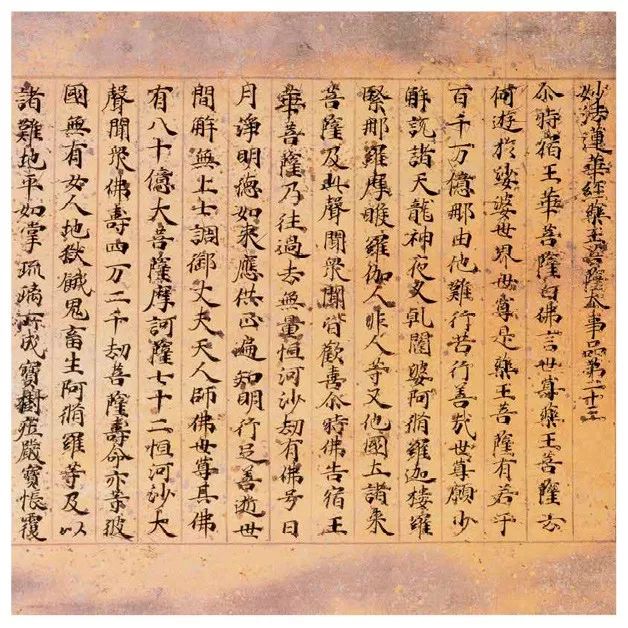 妙法蓮華經藥王菩薩本事品第二十三
尒時宿王華菩薩白佛言世尊藥王菩薩云
何遊於娑婆世界世尊是藥王菩薩有若干
百千万億那由他難行苦行善哉世尊願少
解說諸天龍神夜叉乾闥婆阿脩羅迦樓羅
緊那羅摩睺羅伽人非人等又他國土諸來
菩薩及此聲聞衆聞皆歡喜尒時佛告宿王
華菩薩乃往過去無量恒河沙劫有佛号日
月淨明德如來應供正遍知明行足善逝世
間解無上士調御丈夫天人師佛世尊其佛
有八十億大菩薩摩訶薩七十二恒河沙大
聲聞衆佛壽四万二千劫菩薩壽命亦等彼
國無有女人地獄餓鬼畜生阿脩羅等及以
諸難地平如掌琉璃所成寶樹莊嚴寶帳覆